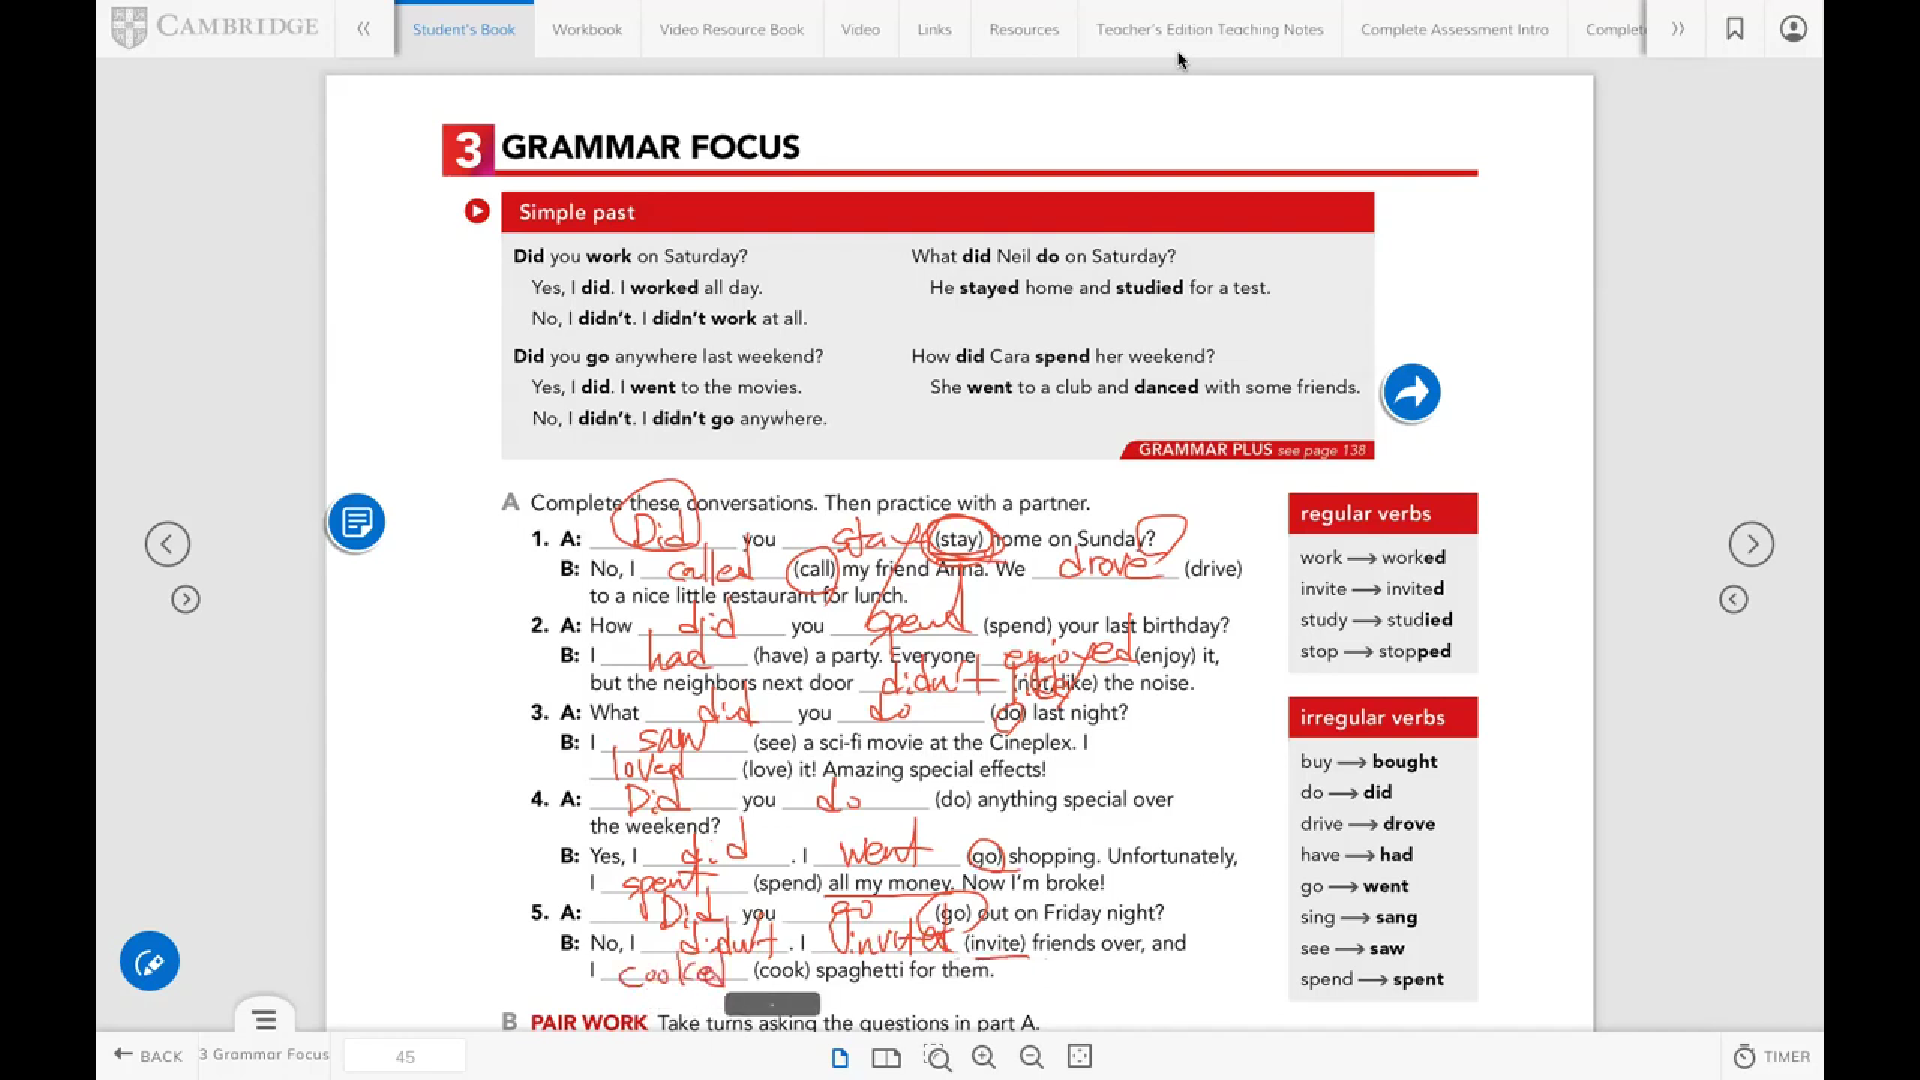 CAMBRIDGE
Student's Book
Workbook
Video Resource Book
Video
Links
Resources
Teacher's Edition Teaching Notes
Complete Assessment Intro
Complet
3 GRAMMAR FOCUS
Simple past
Did you work on Saturday?
Yes, I did. I worked all day.
No, I didn't. I didn't work at all.
Did you go anywhere last weekend?
Yes, I did. I went to the movies.
No, I didn't. I didn't go anywhere.
What did Neil do on Saturday?
He stayed home and studied for a test.
How did Cara spend her weekend?
She went to a club and danced with some friends.
GRAMMAR PLUS see page 138
A Complete these conversations. Then practice with a partner.
1. A: Did you stay (stay) home on Sunday?
B: No, I called (call) my friend Anna. We drove (drive)
to a nice little restaurant for lunch.
2. A: How did you spend (spend) your last birthday?
B: I had (have) a party. Everyone enjoyed (enjoy) it,
but the neighbors next door didn't like (not, like) the noise.
3. A: What did you do (do) last night?
B: I saw (see) a sci-fi movie at the Cineplex. I
loved (love) it! Amazing special effects!
4. A: Did you do (do) anything special over
the weekend?
B: Yes, I did. I went (go) shopping. Unfortunately,
I spent (spend) all my money. Now I'm broke!
5. A: Did you go (go) out on Friday night?
B: No, I didn't. I invited (invite) friends over, and
I cooked (cook) spaghetti for them.
B PAIR WORK Take turns asking the questions in part A.
regular verbs
work → worked
invite → invited
study → studied
stop → stopped
irregular verbs
buy → bought
do → did
drive → drove
have → had
go → went
sing → sang
see → saw
spend → spent
BACK
3 Grammar Focus
45
TIMER